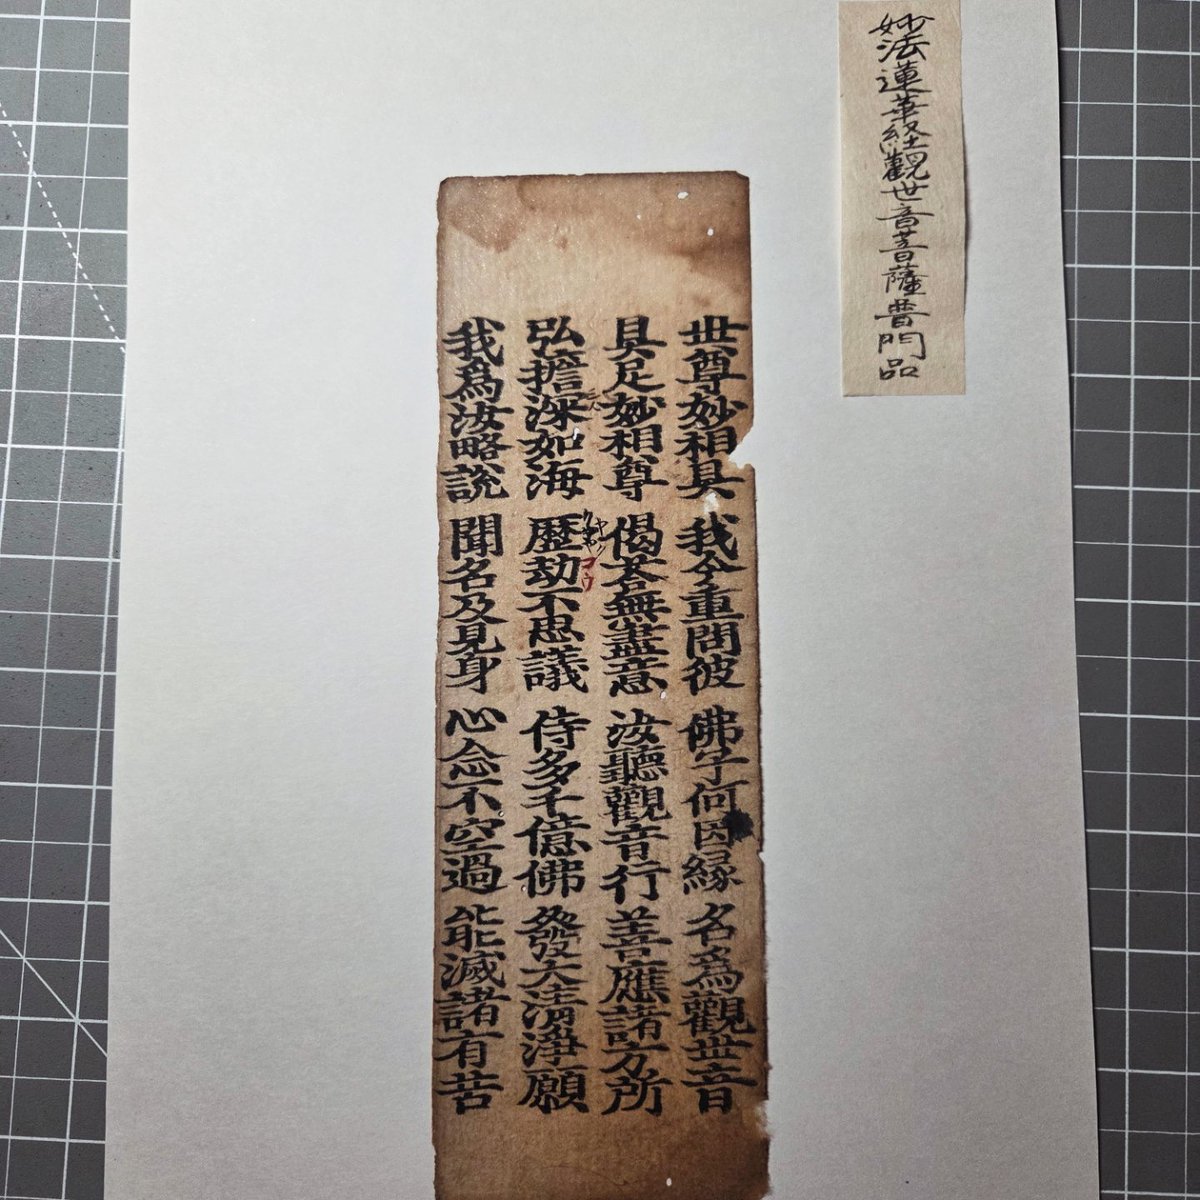 妙法蓮華経觀世音菩薩普門品
丗尊妙相具 我今重問彼 佛子何因緣 名爲觀丗音
具足妙相尊 偈荅無盡意 汝聽觀音行 善應諸方所
コウ
弘擔深如海 歴劫不思議 侍多千億佛 發大清淨願
我爲汝略説 聞名及見身 心念不空過 能滅諸有苦